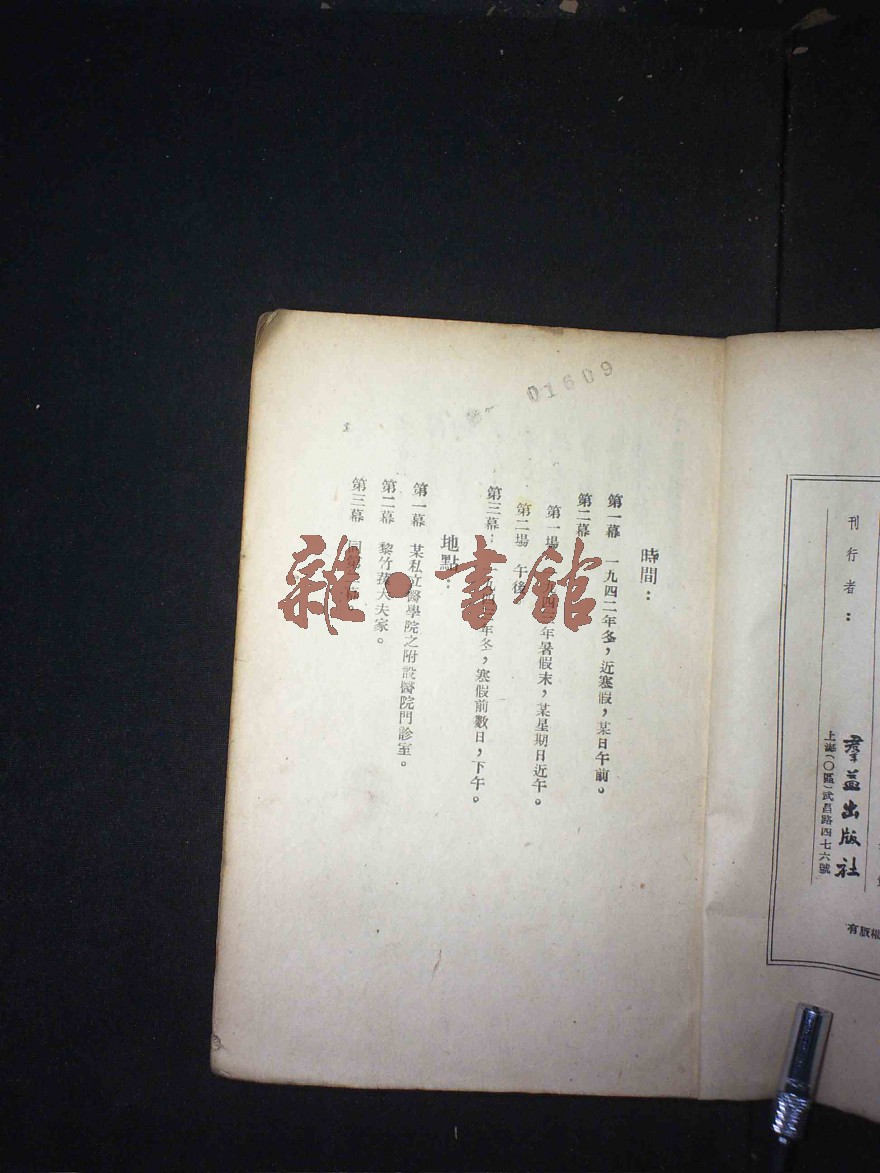 刊行者：
羣益出版社
上海(〇區)武昌路四七六號
有版權
01609
時間：
第一幕 一九四二年冬，近寒假，某日午前。
第二幕
第一場 年暑假末，某星期日近午。
第二場 午後
第三幕： 年冬，寒假前數日，下午。
地點：
第一幕 某私立醫學院之附設醫院門診室。
第二幕 黎竹蓀大夫家。
第三幕 同第
雜·書館